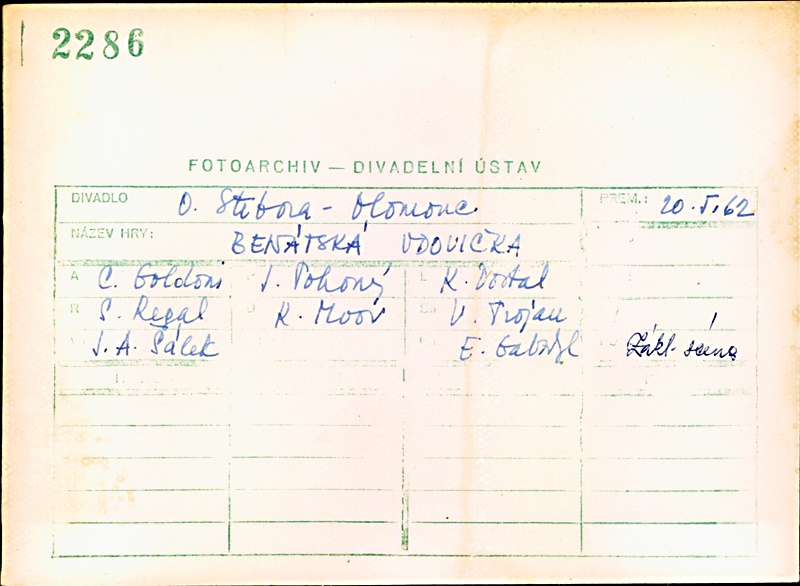 2286
FOTOARCHIV — DIVADELNÍ ÚSTAV
DIVADLO O. Stibora - Olomouc PREM.: 20.5.62
NÁZEV HRY: BENÁTSKÁ VDOVIČKA
A C. Goldoni J. Pokorný K. Dostal
R S. Regal K. Moor V. Trojan
J. A. Šálek E. Gabriel Zákl. scéna